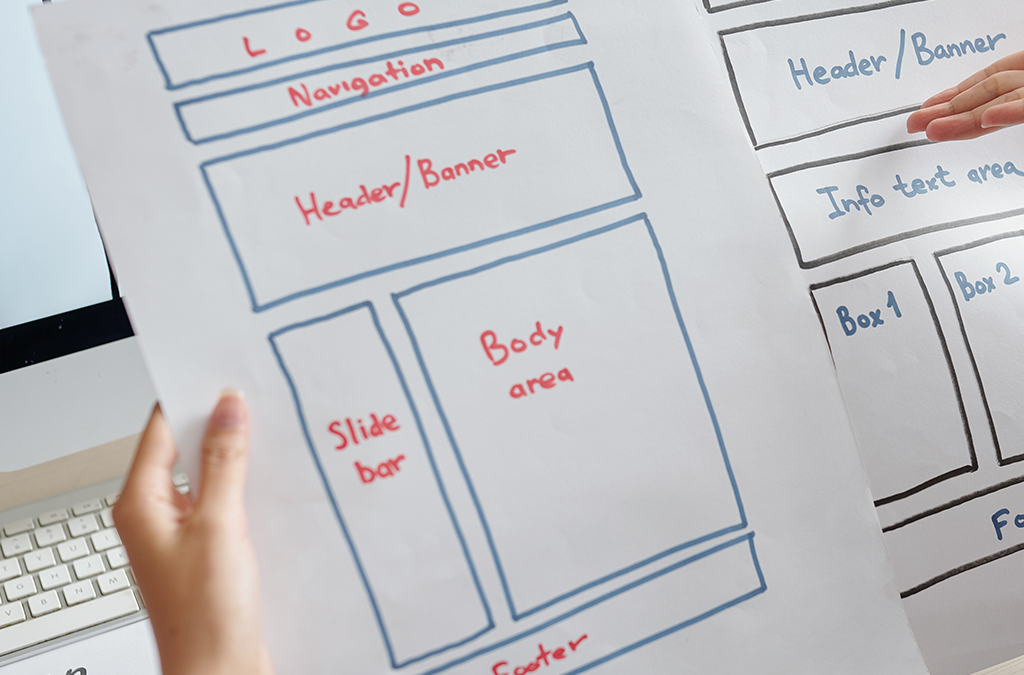 LOGO
Navigation
Header/Banner
Slide
bar
Body
area
Footer
Header/Banner
Info text area
Box 1
Box 2